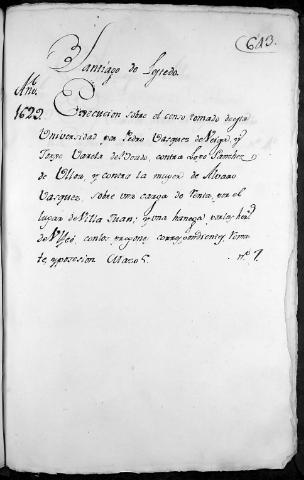 643.
Santiago de
Año
1622.
Execucion sobre el censo tomado de esta
Universidad por Pedro Vasquez de Neira, y
Varela contra Lopo Sanchez
de Ulloa, y contra la muger de Alvaro
Vasquez, sobre una carga de renta, por el
lugar de Villa Juan; y una hanega, por los hered.
de con los pregones correspondientes, rema-
te, y posesion Mazo 5. n.º 7.